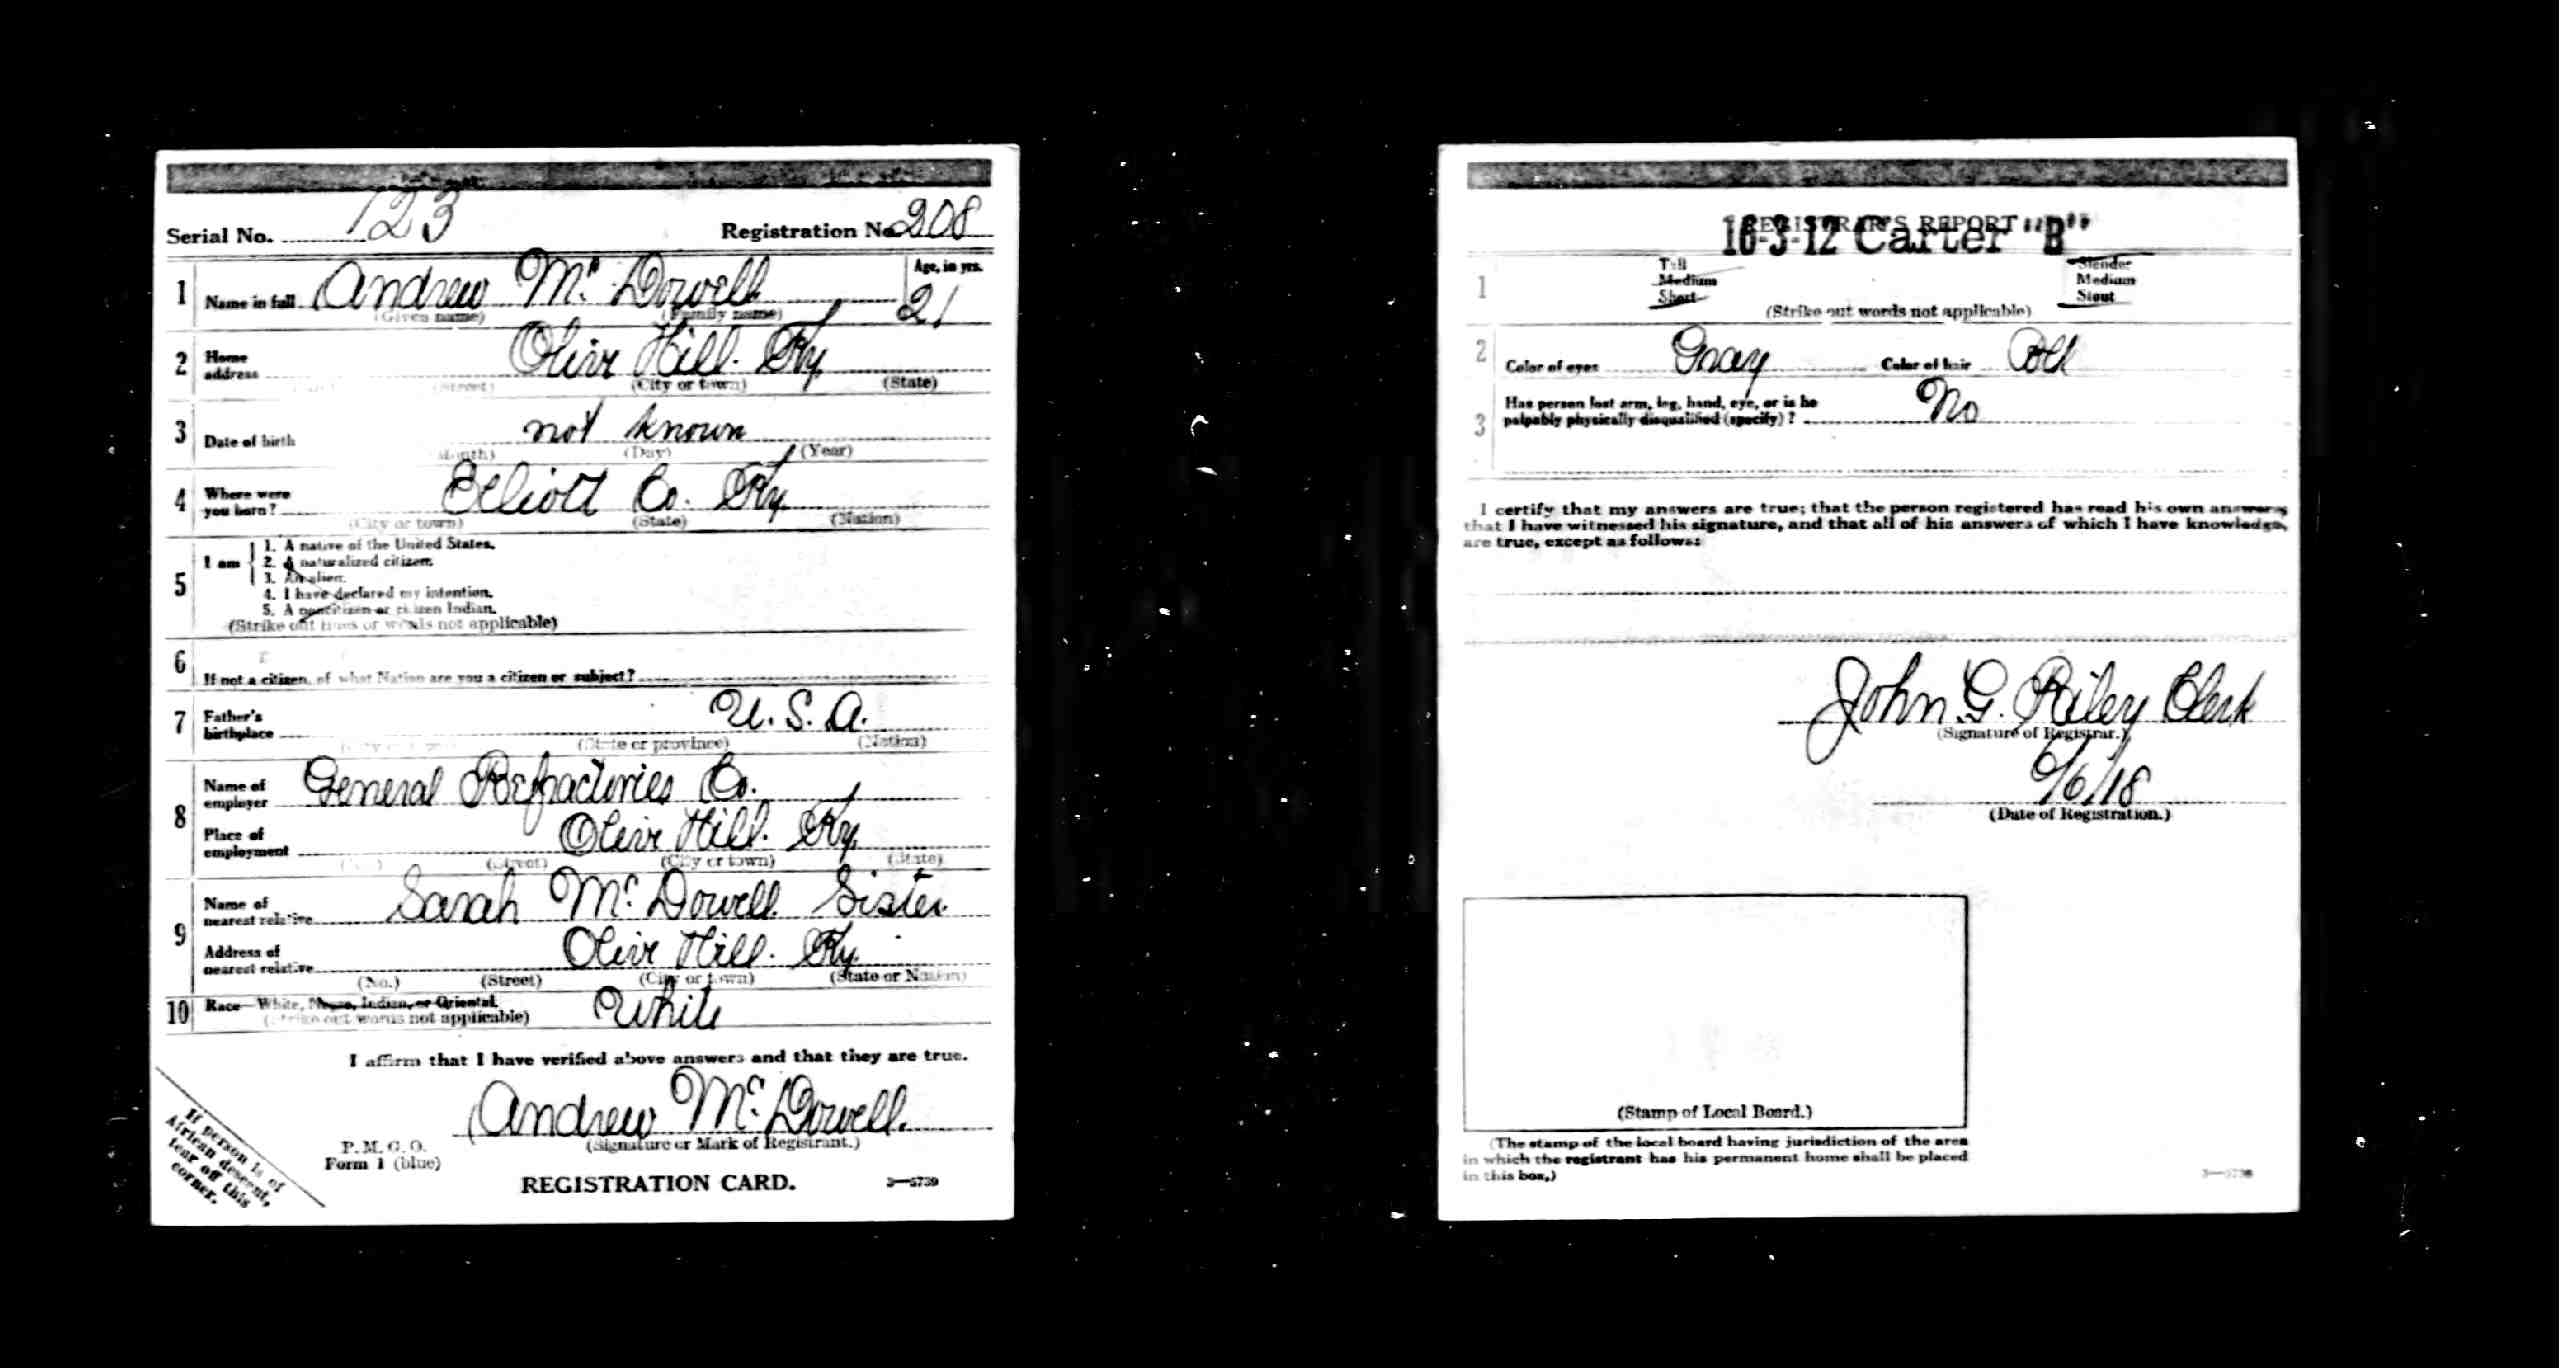 Serial No. 123 Registration No. 208
1 Name in full Andrew Mc Dowell Age, in yrs. 21
(Given name) (Family name)
2 Home address Olive Hill. Ky
(Street) (City or town) (State)
3 Date of birth not known
(Month) (Day) (Year)
4 Where were you born? Elliott Co. Ky
(City or town) (State) (Nation)
5 I am
1. A native of the United States.
2. A naturalized citizen.
3. An alien.
4. I have declared my intention.
5. A noncitizen or citizen Indian.
(Strike out lines or words not applicable)
6 If not a citizen, of what Nation are you a citizen or subject?
7 Father's birthplace U. S. A.
(State or province) (Nation)
8 Name of employer General Refractories Co.
Place of employment Olive Hill. Ky.
(Street) (City or town) (State)
9 Name of nearest relative Sarah Mc Dowell Sister
Address of nearest relative Olive Hill. Ky.
(No.) (Street) (City or town) (State or Nation)
10 Race—White, Negro, Indian, or Oriental. White
(Strike out words not applicable)
I affirm that I have verified above answers and that they are true.
Andrew Mc Dowell.
(Signature or Mark of Registrant.)
P. M. G. O.
Form 1 (blue)
REGISTRATION CARD. 3—5739
If person is of
African descent,
tear off this
corner.
REGISTRAR'S REPORT
16-3-12 Carter "B"
1 Tall Slender
Medium Medium
Short Stout
(Strike out words not applicable)
2 Color of eyes Gray Color of hair
3 Has person lost arm, leg, hand, eye, or is he
palpably physically disqualified (specify)? No
I certify that my answers are true; that the person registered has read his own answers,
that I have witnessed his signature, and that all of his answers of which I have knowledge,
are true, except as follows:
John G. Riley Clerk
(Signature of Registrar.)
6/6/18
(Date of Registration.)
(Stamp of Local Board.)
(The stamp of the local board having jurisdiction of the area
in which the registrant has his permanent home shall be placed
in this box.)